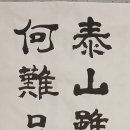 泰山雖
何難